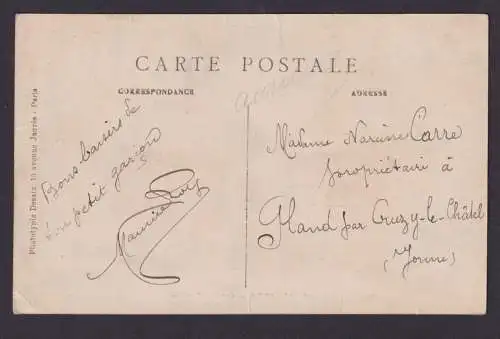 CARTE POSTALE
CORRESPONDANCE
ADRESSE
Bons baisers de
ton petit garçon
Maurice
Madame Narcine Carré
propriétaire à
Gland par Cruzy-le-Châtel
(Yonne)
Phototypie Desaix, 10 avenue - Paris